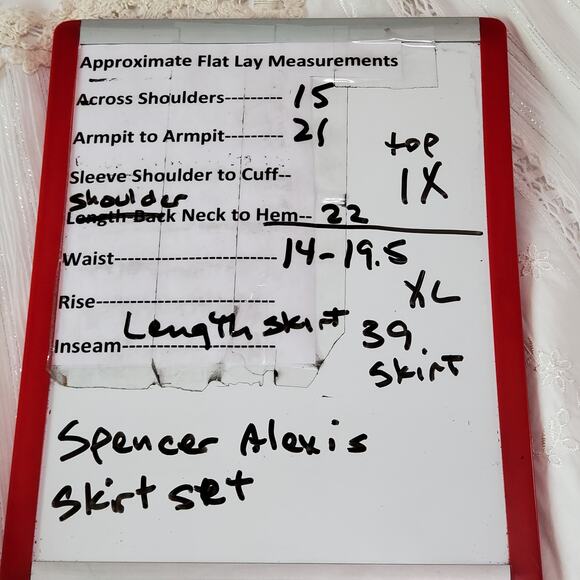 Approximate Flat Lay Measurements
Across Shoulders--------- 15
Armpit to Armpit--------- 21
top
Sleeve Shoulder to Cuff--
1X
Shoulder
Length Back Neck to Hem-- 22
Waist------------------------- 14-19.5
XL
Rise----------------------------
Length skirt 39
Inseam-----------------------
skirt
Spencer Alexis
skirt set